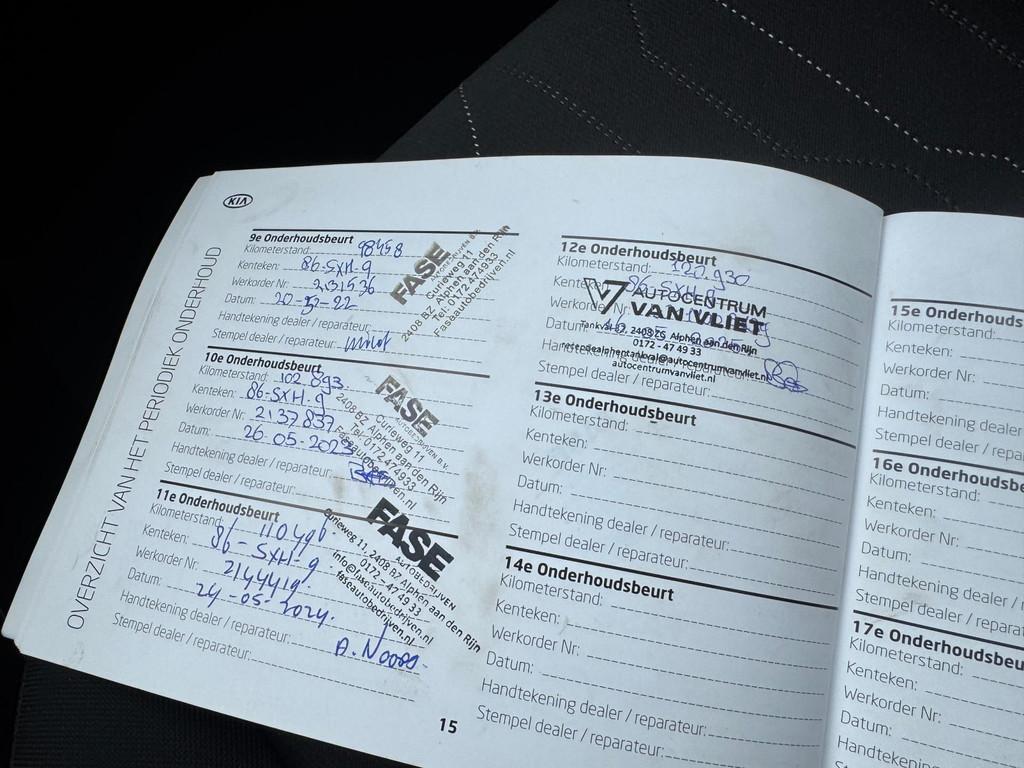 KIA
OVERZICHT VAN HET PERIODIEK ONDERHOUD
9e Onderhoudsbeurt
Kilometerstand: 98458
Kenteken: 86-SXH-9
Werkorder Nr: 2131536
Datum: 20- -22
Handtekening dealer / reparateur:
Stempel dealer / reparateur:
FASE
AUTOBEDRIJVEN B.V.
Curieweg 11
2408 BZ Alphen aan den Rijn
Tel: 0172 474933
Faseautobedrijven.nl
10e Onderhoudsbeurt
Kilometerstand: 102.893
Kenteken: 86-SXH-9
Werkorder Nr: 2137837
Datum: 26.05-2023
Handtekening dealer / reparateur:
Stempel dealer / reparateur:
FASE
AUTOBEDRIJVEN B.V.
Curieweg 11
2408 BZ Alphen aan den Rijn
Tel: 0172 474933
Faseautobedrijven.nl
11e Onderhoudsbeurt
Kilometerstand: 110496
Kenteken: 86-SXH-9
Werkorder Nr: 2144419
Datum: 24-05-2024.
Handtekening dealer / reparateur:
Stempel dealer / reparateur:
FASE
AUTOBEDRIJVEN
Curieweg 11, 2408 BZ Alphen aan den Rijn
0172 - 47 49 33
info@faseautobedrijven.nl
faseautobedrijven.nl
15
12e Onderhoudsbeurt
Kilometerstand: 120930
Kenteken: 86-SXH-9
Werkorder Nr:
Datum: 2025
Handtekening dealer / reparateur:
Stempel dealer / reparateur:
AUTOCENTRUM
VAN VLIET
2408 ZS Alphen aan den Rijn
0172 - 47 49 33
autocentrumvanvliet.nl
13e Onderhoudsbeurt
Kilometerstand:
Kenteken:
Werkorder Nr:
Datum:
Handtekening dealer / reparateur:
Stempel dealer / reparateur:
14e Onderhoudsbeurt
Kilometerstand:
Kenteken:
Werkorder Nr:
Datum:
Handtekening dealer / reparateur:
Stempel dealer / reparateur:
15e Onderhouds
Kilometerstand:
Kenteken:
Werkorder Nr:
Datum:
Handtekening dealer
Stempel dealer / repa
16e Onderhoudsbe
Kilometerstand:
Kenteken:
Werkorder Nr:
Datum:
Handtekening dealer / r
Stempel dealer / repara
17e Onderhoudsbeu
Kilometerstand:
Kenteken:
Werkorder Nr:
Datum:
Handtekening